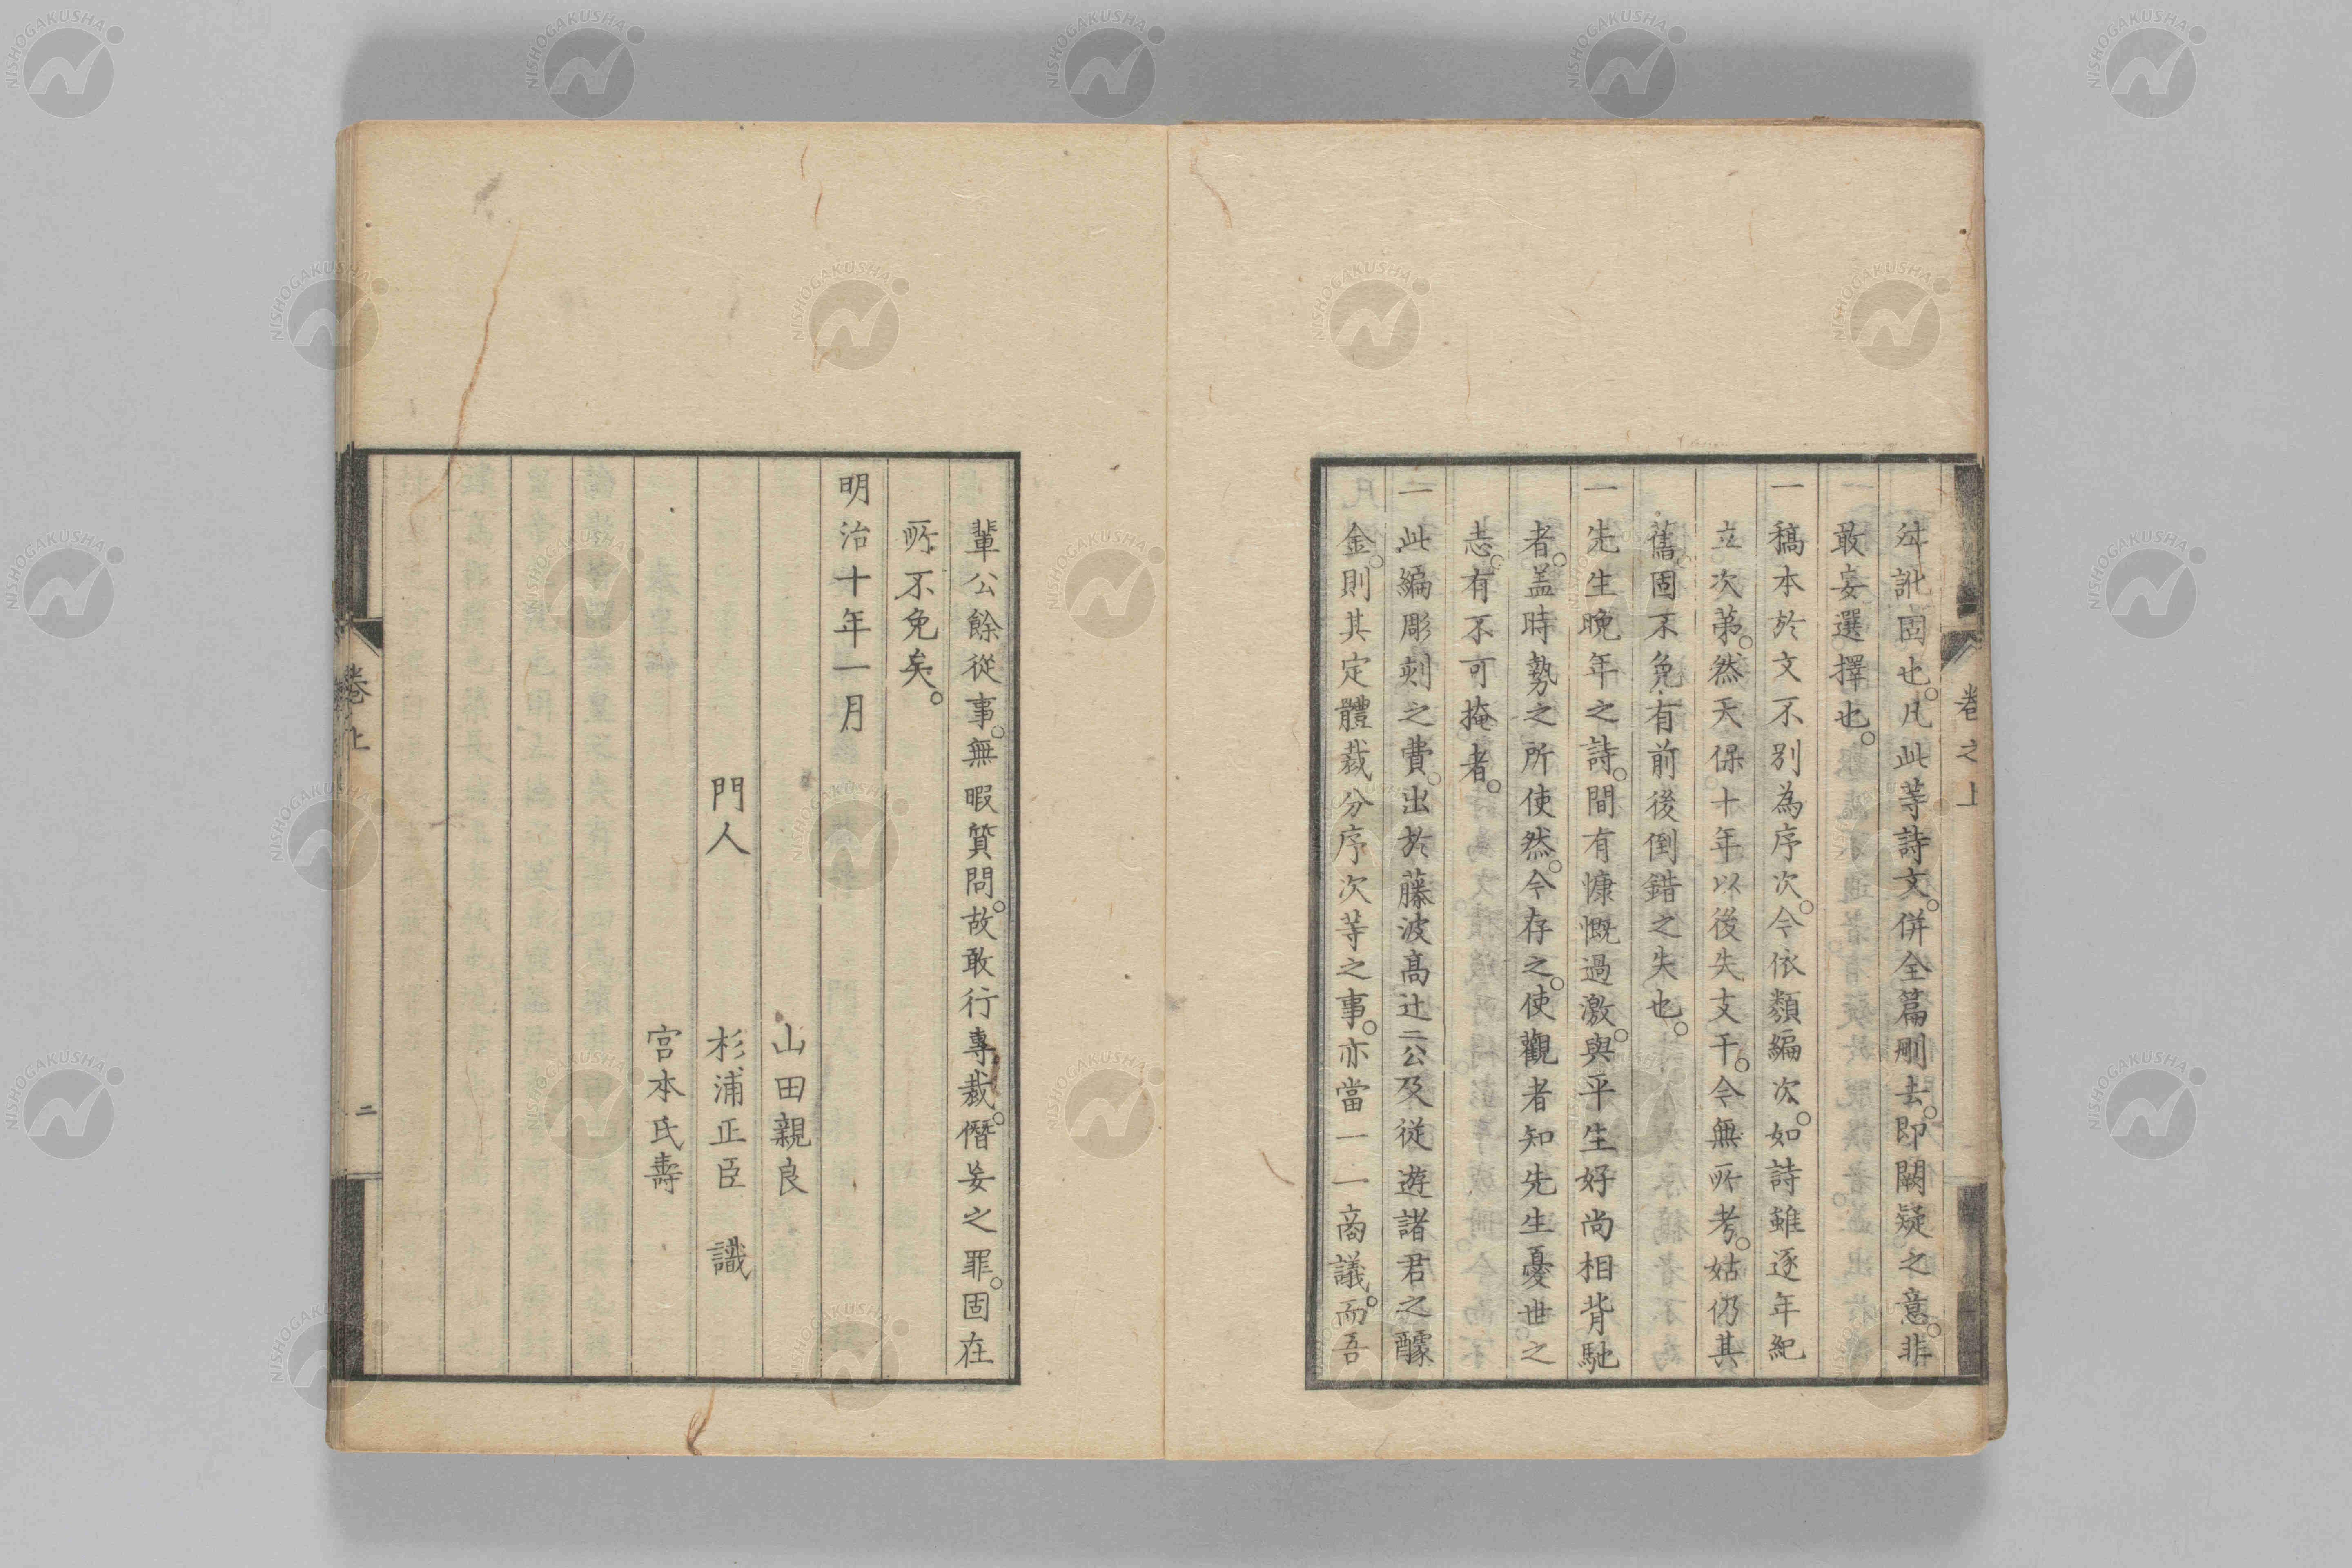 舛訛固也。凡此等詩文。併全篇刪去。即闕疑之意。非
敢妄選擇也。
一稿本於文不別為序次。今依類編次。如詩雖逐年紀
立次第。然天保十年以後失支干。今無所考。姑仍其
舊。固不免有前後倒錯之失也。
一先生晚年之詩。間有慷慨過激。與平生好尚相背馳
者。盖時勢之所使然。今存之。使觀者知先生憂世之
志。有不可掩者。
一此編彫刻之費。出於藤波高辻二公及從遊諸君之醵
金。則其定體裁分序次等之事。亦當一一商議。而吾
卷之上
輩公餘從事。無暇質問。故敢行專裁。僭妄之罪。固在
所不免矣。
明治十年一月
山田親良
門人 杉浦正臣 識
宮本氏壽
卷上
二
NISHOGAKUSHA